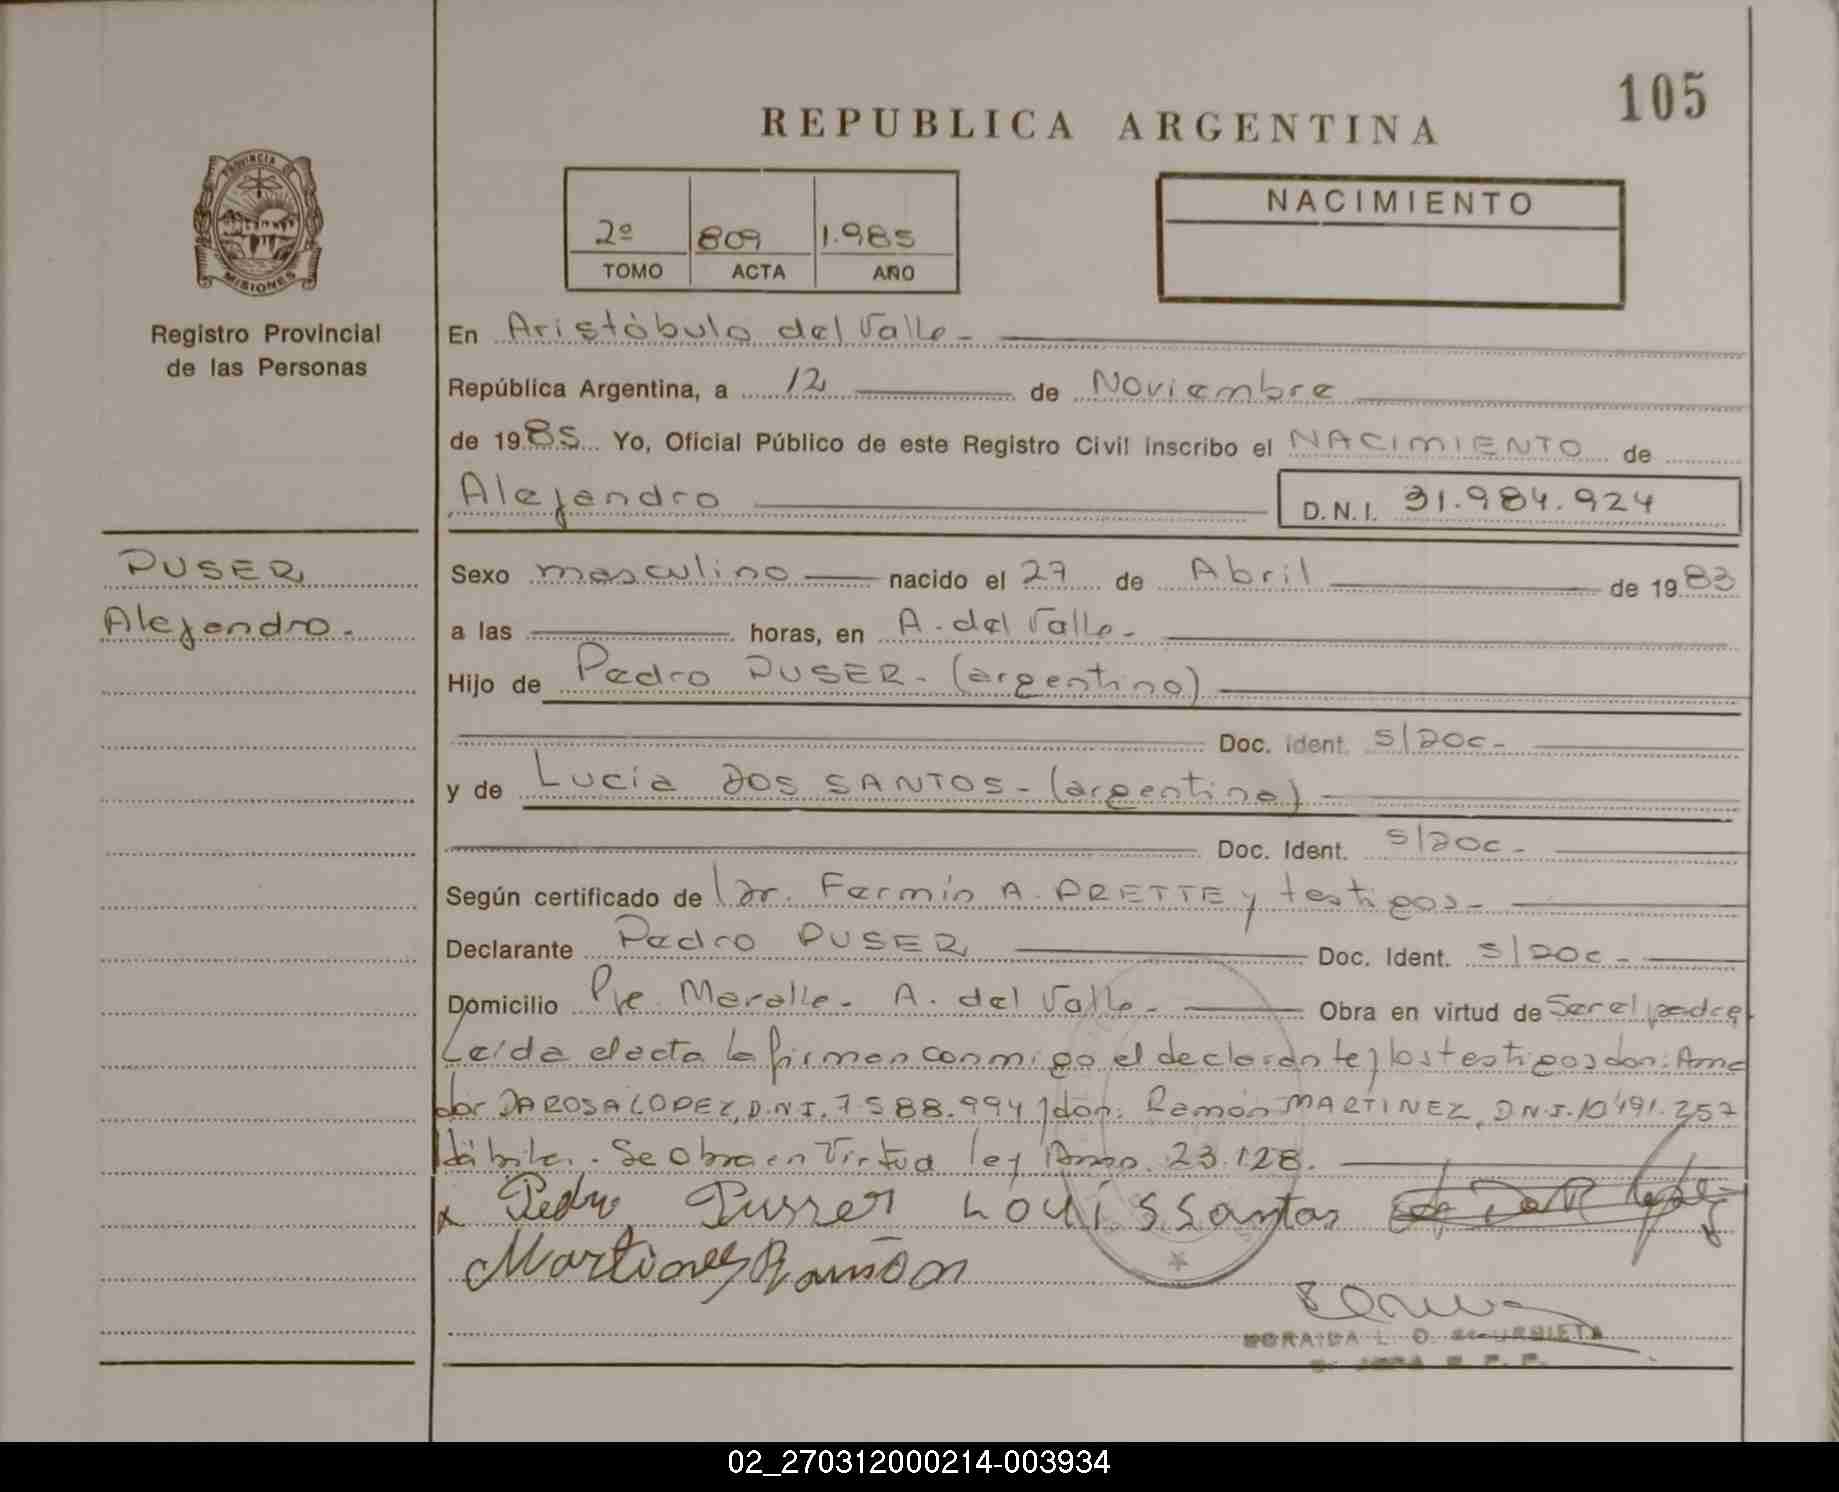 105
REPUBLICA ARGENTINA
PROVINCIA DE
MISIONES
Registro Provincial
de las Personas
2º 809 1.985
TOMO ACTA AÑO
NACIMIENTO
En Aristóbulo del Valle.-
República Argentina, a 12 de Noviembre
de 1985 Yo, Oficial Público de este Registro Civil inscribo el NACIMIENTO de
Alejandro D.N.I. 31.984.924
PUSER
Alejandro.
Sexo masculino nacido el 27 de Abril de 1983
a las horas, en A. del Valle.-
Hijo de Pedro PUSER.- (argentino)
Doc. Ident. S/Doc.-
y de Lucia DOS SANTOS.- (argentina)
Doc. Ident. S/Doc.-
Según certificado de Dr. Fermín A. PRETTE y testigos.-
Declarante Pedro PUSER Doc. Ident. S/Doc.-
Domicilio Pje. Maralle.- A. del Valle.- Obra en virtud de Ser el padre
Leída el acta la firman conmigo el declarante y los testigos don: Ama
dor DA ROSA LOPEZ, D.N.I. 7.588.994 y don: Ramón MARTINEZ, D.N.I. 10.491.257
Hábiles. Se obra en Virtud ley Amp. 23.128.
x Pedro Pusser Louis S Santos
Martines Ramón
02_270312000214-003934